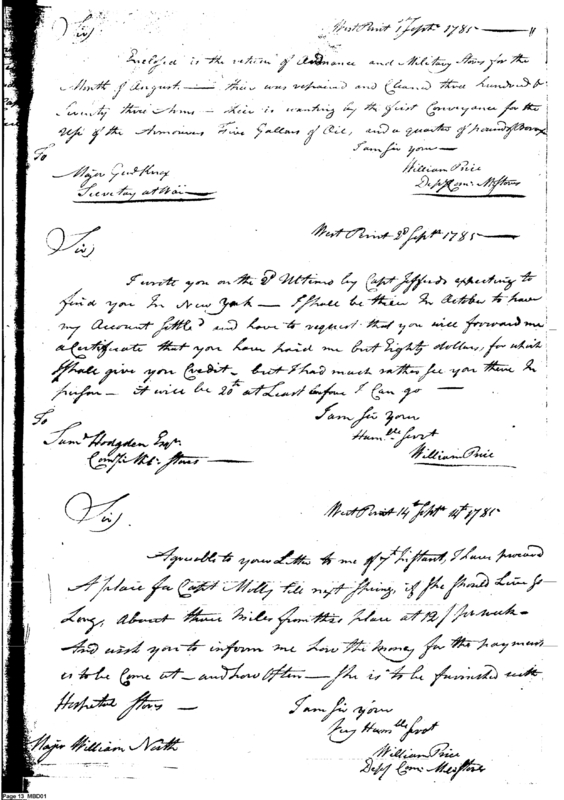 Sir West Point 1st Septr 1785
Enclosed is the return of Ordnance and Military Stores for the
Month of August — there was repaired and Cleaned three hundred &
Seventy three Arms — there is wanting by the first Conveyance for the
use of the Armourers Five Gallons of Oil, and a quarter of pound of Borax
I am Sir your —
To
Major Genl Knox
Secretary at War
William Price
Depy Comy My Stores
West Point 2d Septr 1785
Sir
I wrote you on the 2d Ultimo by Capt Jefferds expecting to
find you In New York — I shall be there In October to have
my Account Settled and have to request that you will forward me
a Certificate that you have paid me but Eighty dollars, for which
I shall give you Credit — but I had much rather see you there In
person — it will be 20th at Least before I can go —
I am Sir your
Humble Servt
William Price
To
Saml Hodgden Esqr
Comy Stores
West Point 14th Septr 1785
Sir
Agreeable to your Letter to me of 7th Instant, I have procured
A place for Capt Molly till next Spring, if She should Live So
Long, about three Miles from this place at 12/ pr week —
And wish you to inform me how the Money for the payment
is to be Come at — and how Often — She is to be furnished with
Hospital Stores —
I am Sir your
Very Humble Servt
William Price
Depy Comy My Stores
Major William North
Page 13 MBD01